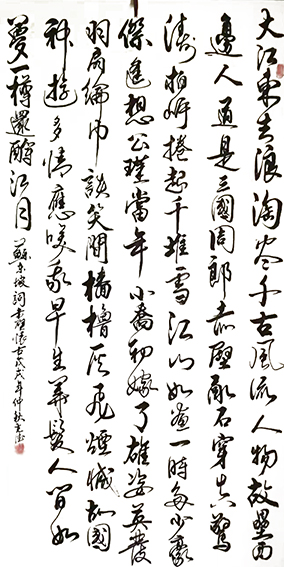 大江東去浪淘盡千古風流人物故壘西
邊人道是三國周郎赤壁亂石穿空驚
濤拍岸捲起千堆雪江山如畫一時多少豪
傑遙想公瑾當年小喬初嫁了雄姿英發
羽扇綸巾談笑間檣櫓灰飛煙滅故國
神遊多情應笑我早生華髮人間如
夢一樽還酹江月
蘇東坡詞赤壁懷古戊戌年仲秋